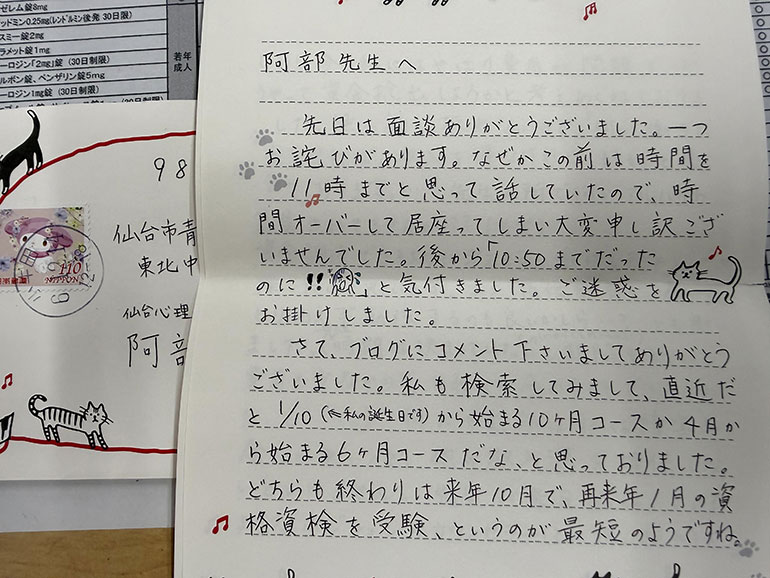 ゼレム錠8mg
ッドミン0.25mg(レンドルミン後発 30日制限)
スミー錠2mg
ラメット錠1mg
ーロジン「2mg」錠 (30日制限)
ルボン錠、ベンザリン錠5mg
ーロジン1mg錠 (30日制限)
若年
成人
98
110
NIPPON
仙台市青
東北中
仙台心理
阿部
阿部先生へ
先日は面談ありがとうございました。一つ
お詫びがあります。なぜかこの前は時間を
11時までと思って話していたので、時
間オーバーして居座ってしまい大変申し訳ござ
いませんでした。後から「10:50までだった
のに!!」と気付きました。ご迷惑を
お掛けしました。
さて、ブログにコメント下さいましてありがとう
ございました。私も検索してみまして、直近だ
と1/10(⇐私の誕生日です)から始まる10ヶ月コースか4月か
ら始まる6ヶ月コースだな、と思っておりました。
どちらも終わりは来年10月で、再来年1月の資
格資検を受験、というのが最短のようですね。